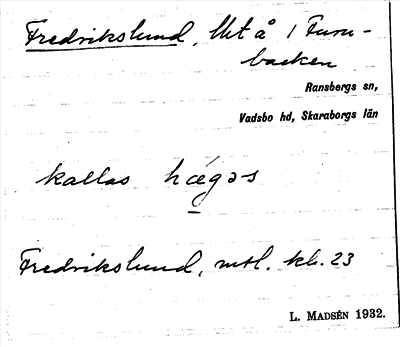 Fredrikslund, Ut å 1 Furu-
backen
Ransbergs sn,
Vadsbo hd, Skaraborgs län
kallas hægəs
Fredrikslund, mtl. kb. 23
L. MADSÉN 1932.